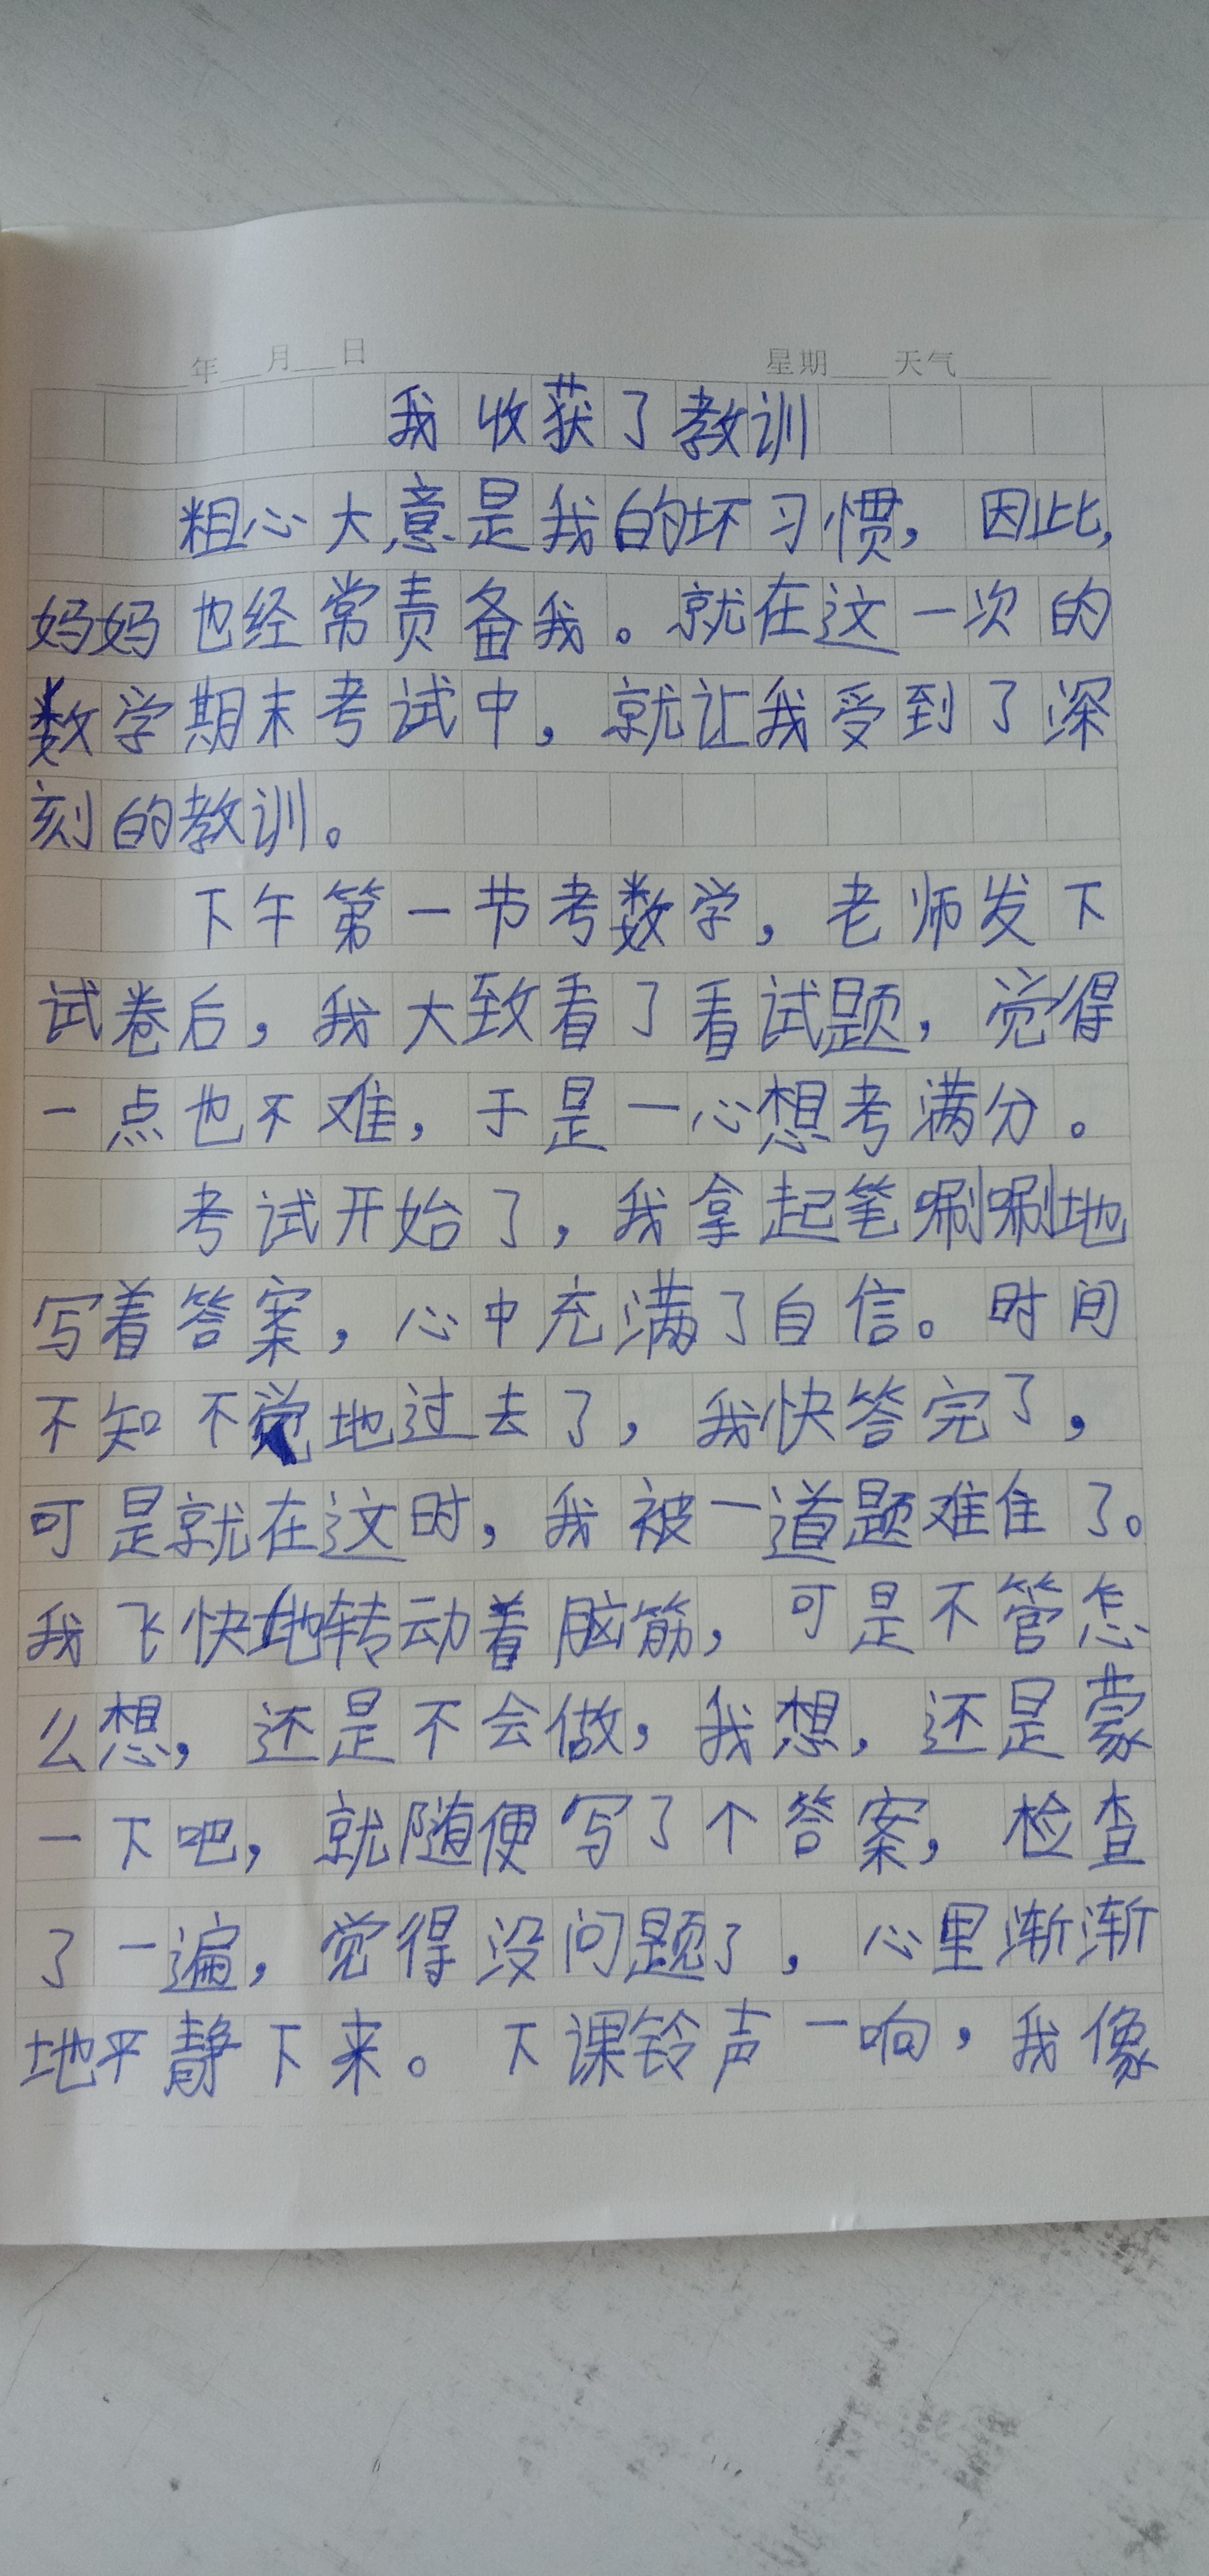 年 月 日 星期 天气
我收获了教训
粗心大意是我的坏习惯，因此，
妈妈也经常责备我。就在这一次的
数学期末考试中，就让我受到了深
刻的教训。
下午第一节考数学，老师发下
试卷后，我大致看了看试题，觉得
一点也不难，于是一心想考满分。
考试开始了，我拿起笔唰唰地
写着答案，心中充满了自信。时间
不知不觉地过去了，我快答完了，
可是就在这时，我被一道题难住了。
我飞快地转动着脑筋，可是不管怎
么想，还是不会做，我想，还是蒙
一下吧，就随便写了个答案，检查
了一遍，觉得没问题了，心里渐渐
地平静下来。下课铃声一响，我像